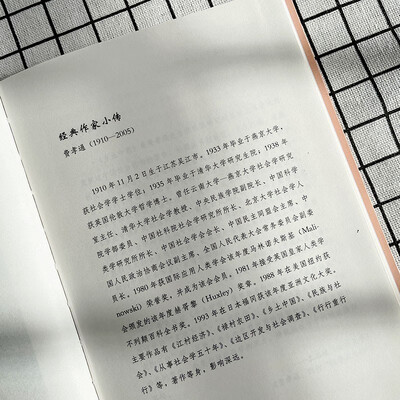 经典作家小传
费孝通（1910—2005）
1910年11月2日生于江苏吴江市。1933年毕业于燕京大学，
获社会学学士学位；1935年毕业于清华大学研究生院；1938年
获英国伦敦大学哲学博士。曾任云南大学—燕京大学社会学研究
室主任、清华大学社会学教授、中央民族学院副院长、中国科学
院学部委员、中国社科院社会学研究所所长、北京大学社会学人
类学研究所所长、中国社会学会会长、中国民主同盟会主席、中
国人民政治协商会议副主席、全国人民代表大会常务委员会副委
员长。1980年获国际应用人类学会该年度马林诺夫斯基（Mali-
nowski）荣誉奖，并成为该会会员。1981年接受英国皇家人类学
会颁发的该年度赫胥黎（Huxley）奖章。1988年在美国纽约获
不列颠百科全书奖。1993年在日本福冈获该年度亚洲文化大奖。
主要作品有《江村经济》、《禄村农田》、《乡土中国》、《民族与社
会》、《从事社会学五十年》、《边区开发与社会调查》、《行行重行
行》等，著作等身，影响深远。